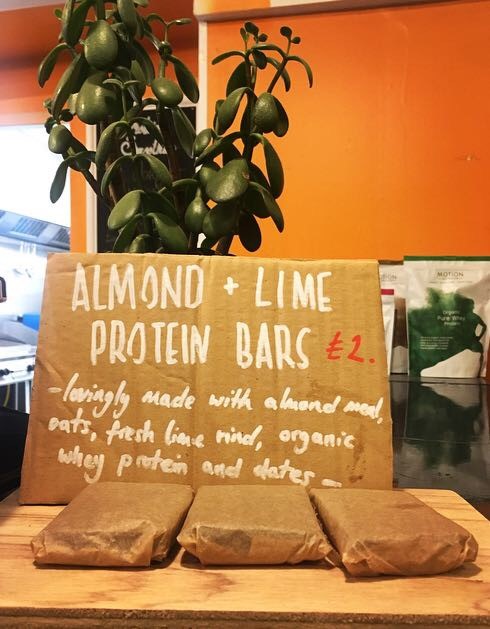 ALMOND + LIME
PROTEIN BARS £2.
-lovingly made with almond meal,
oats, fresh lime rind, organic
whey protein and dates-
MOTION
Organic
Pure Whey
Protein